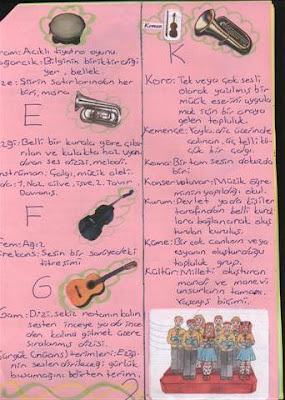 ram: Acıklı tiyatro oyunu.
ağarcık: Bilginin biriktirdiği
yer, bellek.
ze: Şiirin satırlarından her
biri, mısra
E
zgi: Belli bir kurala göre çıka-
rılan ve kulakta haz uyan-
dıran ses dizisi, melodi.
nstrüman: Çalgı, müzik aleti.
da: 1. Naz, cilve, işve. 2. Tavır
Davranış.
F
em: Ağız
rekans: Sesin bir saniyedeki
titreşimi
G
Gam: Dizi, sekiz notanın kalın
sesten inceye ya da ince-
den kalına gitmek üzere
sıralanmış dizisi.
Gürlük (nüans) terimleri: Ezgi-
nin seslendirileceği gürlük
basamağını belirten terim.
Keman
K
Koro: Tek veya çok sesli
olarak yazılmış bir
müzik eserini uygula
mak için bir araya
gelen topluluk.
Kemençe: Yayla, diz üzerinde
çalınan, üç telli, kü-
çük bir çalgı.
Koma: Bir tam sesin dokuzda
biri.
Konservatuvar: Müzik öğre
menin yapıldığı okul.
Kurum: Devlet ya da kişiler
tarafından belli kural
lara bağlanarak oluş
turulan kuruluş.
Küme: Birçok canlının veya
eşyanın oluşturduğu
topluluk, grup.
Kültür: Milleti oluşturan
maddi ve manevi
unsurların tamamı.
Yaşayış biçimi.